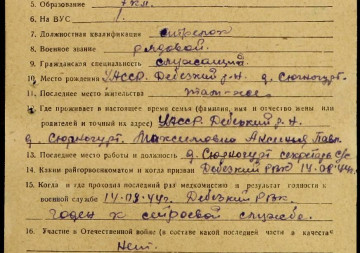 5. Образование 7 кл.
6. На ВУС
7. Должностная квалификация стрелок
8. Военное звание рядовой.
9. Гражданская специальность служащий
10. Место рождения УАССР. Дебесский р-н. д. Сюрногурт.
11. Последнее место жительства там-же.
12. Где проживает в настоящее время семья (фамилия, имя и отчество жены или
родителей и точный их адрес) УАССР. Дебесский р-н.
д. Сюрногурт. Максимовна Аксиния Павл.
13. Последнее место работы и должность д. Сюрногурт секретарь с/с
14. Каким райгорвоенкоматом и когда призван Дебесский РВК 14-08-44г.
15. Когда и где проходил последний раз медкомиссию и результат годности к
военной службе 14-08-44г. Дебесский РВК.
годен к строевой службе.
16. Участие в Отечественной войне (в составе какой последней части в качестве
Нет.